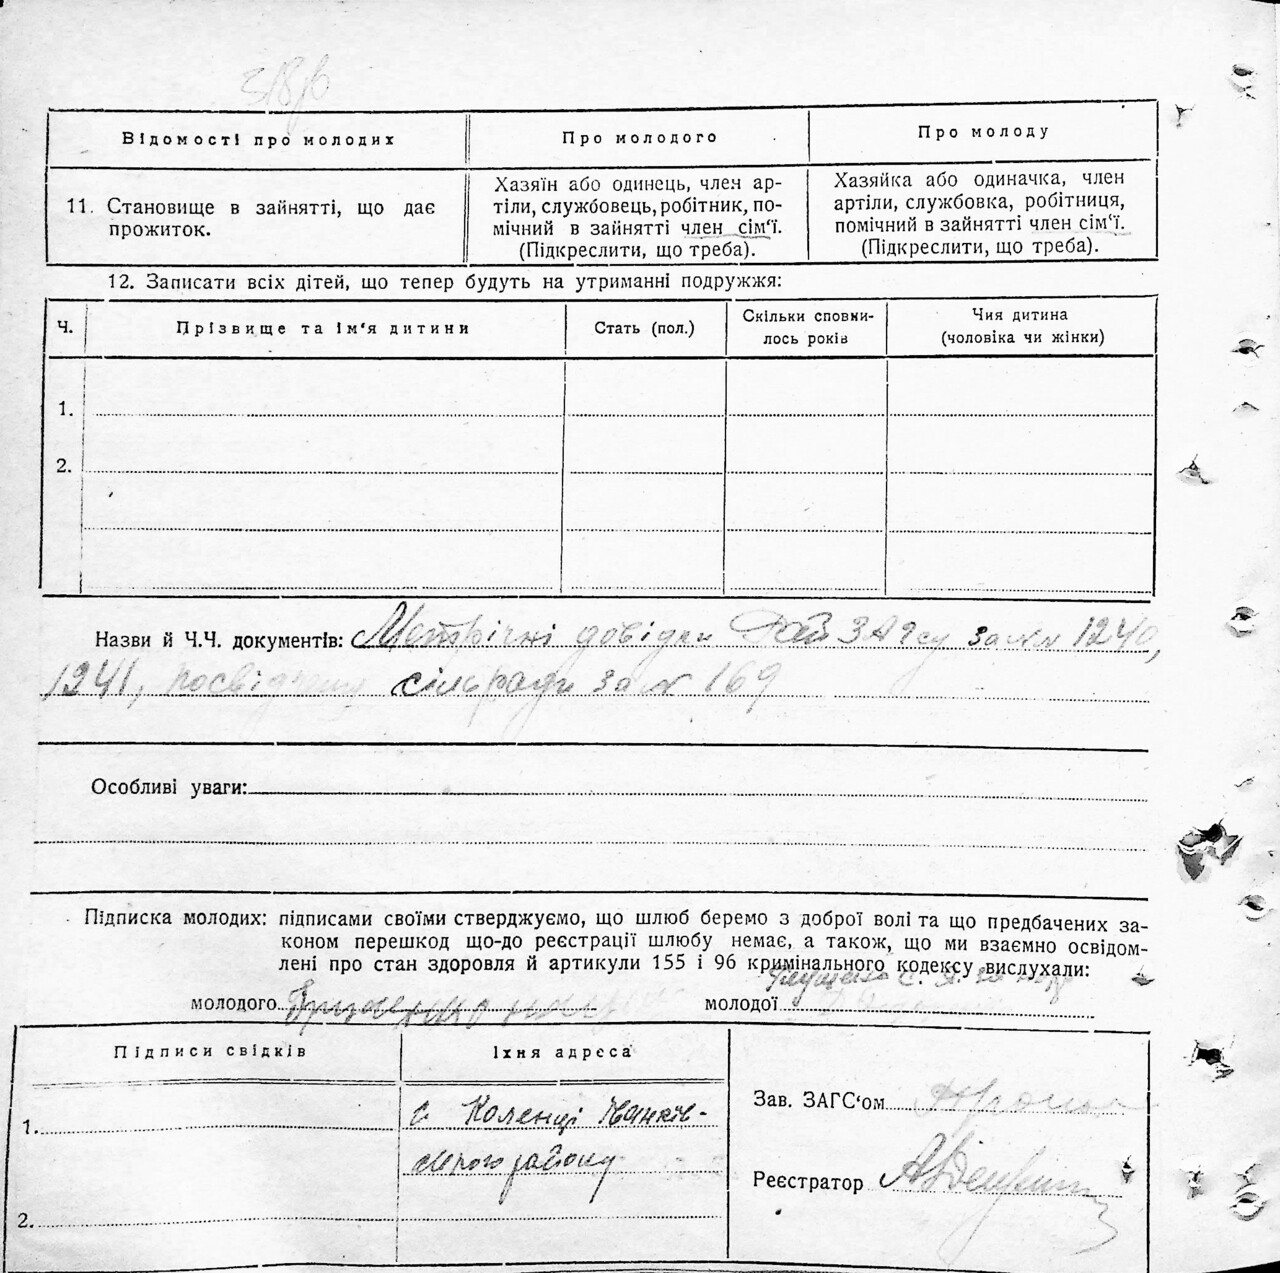 Відомості про молодих
Про молодого
Про молоду
11. Становище в зайнятті, що дає
прожиток.
Хазяїн або одинець, член ар-
тіли, службовець, робітник, по-
мічний в зайнятті член сім'ї.
(Підкреслити, що треба).
Хазяйка або одиначка, член
артіли, службовка, робітниця,
помічний в зайнятті член сім'ї.
(Підкреслити, що треба).
12. Записати всіх дітей, що тепер будуть на утриманні подружжя:
Ч.
Прізвище та ім'я дитини
Стать (пол.)
Скільки сповни-
лось років
Чия дитина
(чоловіка чи жінки)
1.
2.
Назви й Ч.Ч. документів: Метричні довідки ЗАГсу за №№ 1240,
1241, посвідчення сільради за № 169
Особливі уваги:
Підписка молодих: підписами своїми стверджуємо, що шлюб беремо з доброї волі та що предбачених за-
коном перешкод що-до реєстрації шлюбу немає, а також, що ми взаємно освідом-
лені про стан здоровля й артикули 155 і 96 кримінального кодексу вислухали:
молодого
молодої
Підписи свідків
Їхня адреса
1.
с Коленці Іванків-
ського району
2.
Зав. ЗАГС'ом
Реєстратор